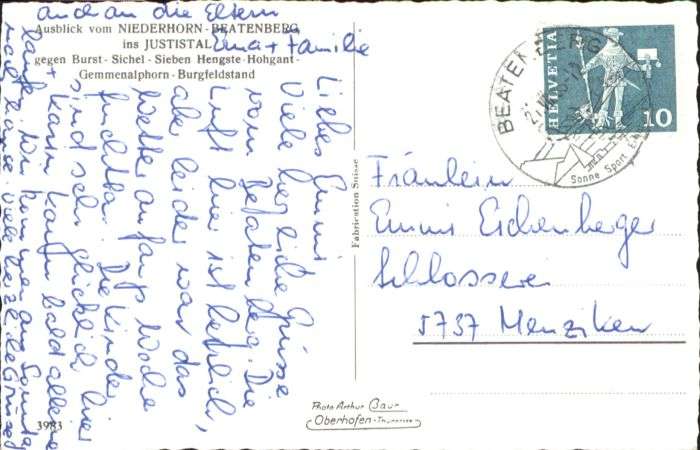 Ausblick vom NIEDERHORN-BEATENBERG
ins JUSTISTAL
gegen Burst - Sichel - Sieben Hengste - Hohgant -
Gemmenalphorn - Burgfeldstand
Liebes Emmi
Viele herzliche Grüsse
vom Beatenberg. Die
Luft hier ist herrlich,
aber leider war das
Wetter anfangs Woche
furchtbar. Die Kinder
sind sehr glücklich hier
+ Karin kann bald alleine
laufen. Wir kommen am Sonntag
nach Hause. Viele herzliche Grüsse
auch an die Eltern
Erna + Familie
Fabrication Suisse
HELVETIA
10
BEATENBERG
Sonne Sport
Fräulein
Emmi Eichenberger
Schlosserei
5737 Menziken
Photo Arthur Baur
Oberhofen-Thunersee
3983